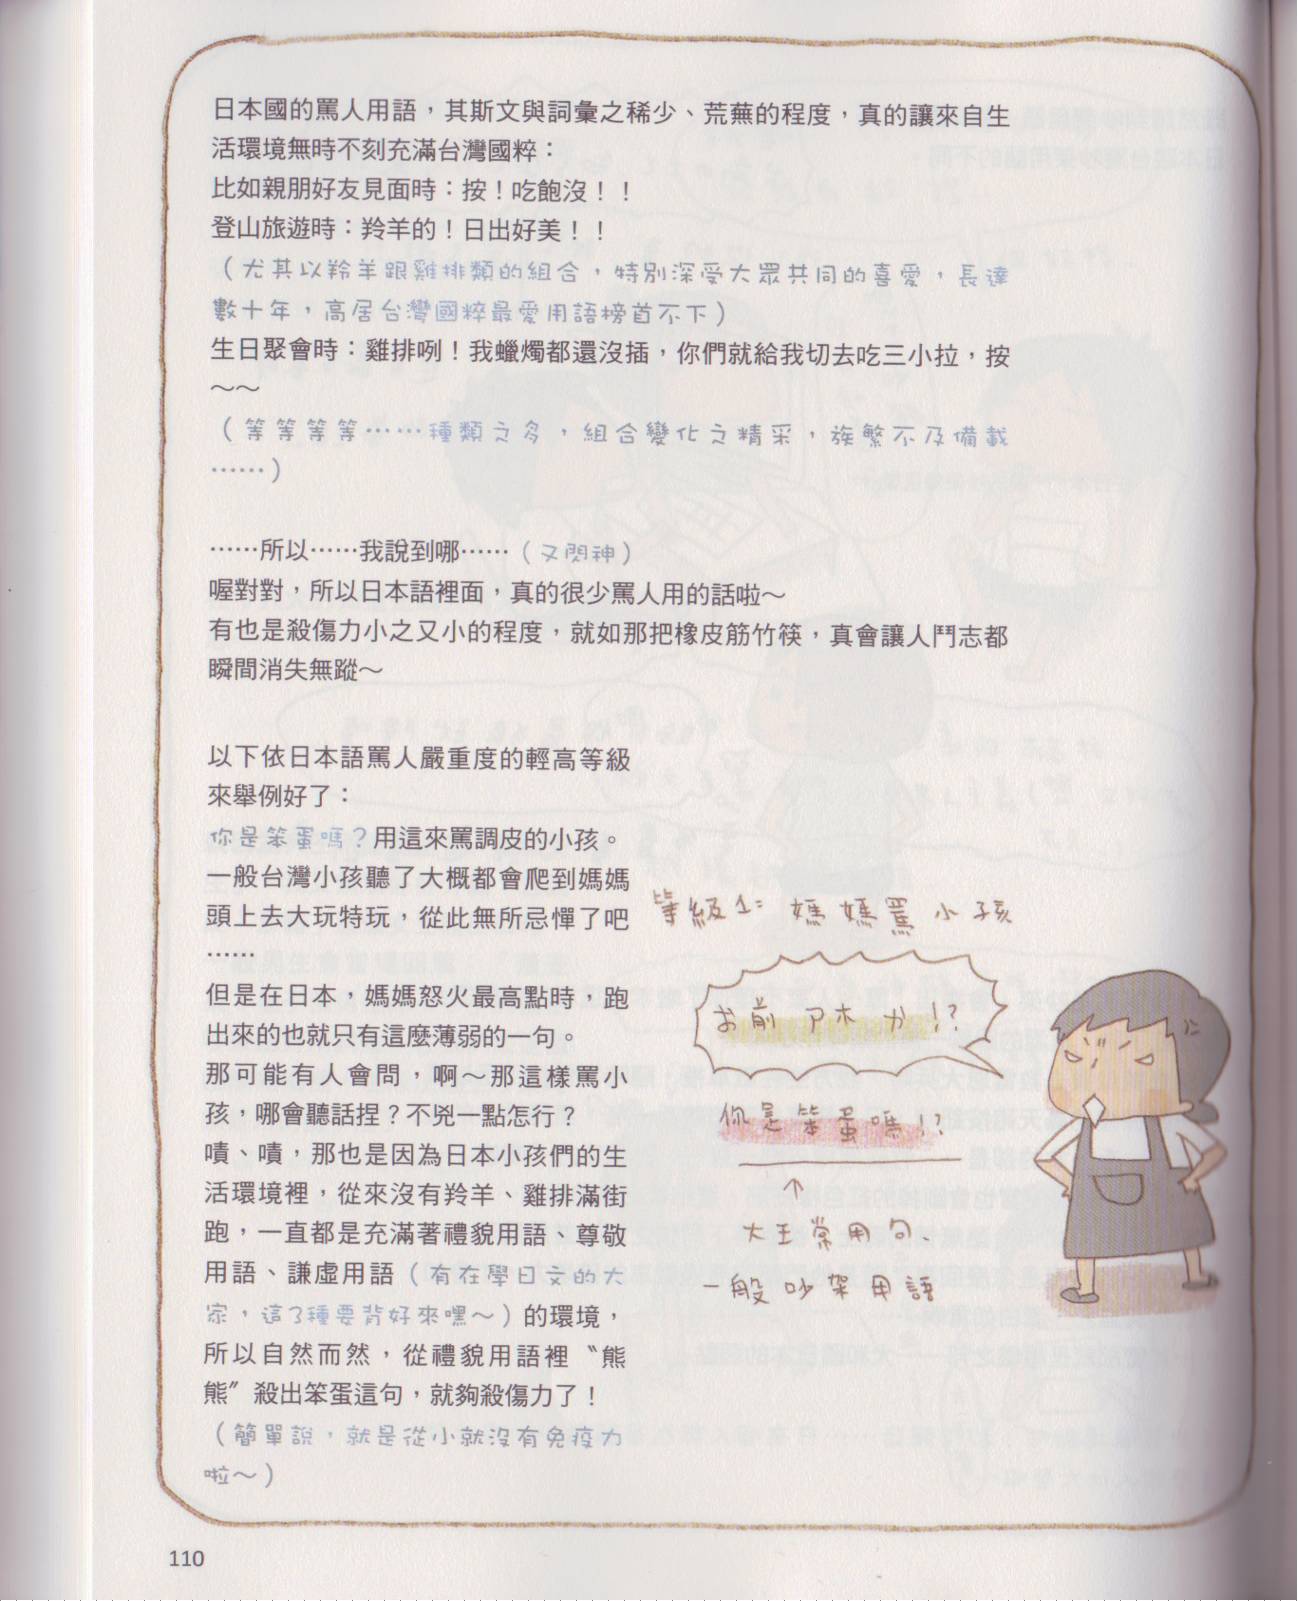 日本國的罵人用語，其斯文與詞彙之稀少、荒蕪的程度，真的讓來自生
活環境無時不刻充滿台灣國粹：
比如親朋好友見面時：按！吃飽沒！！
登山旅遊時：羚羊的！日出好美！！
（尤其以羚羊跟雞排類的組合，特別深受大眾共同的喜愛，長達
數十年，高居台灣國粹最愛用語榜首不下）
生日聚會時：雞排咧！我蠟燭都還沒插，你們就給我切去吃三小拉，按
～～
（等等等等……種類之多，組合變化之精采，族繁不及備載
……）
……所以……我說到哪……（又閃神）
喔對對，所以日本語裡面，真的很少罵人用的話啦～
有也是殺傷力小之又小的程度，就如那把橡皮筋竹筷，真會讓人鬥志都
瞬間消失無蹤～
以下依日本語罵人嚴重度的輕高等級
來舉例好了：
你是笨蛋嗎？用這來罵調皮的小孩。
一般台灣小孩聽了大概都會爬到媽媽
頭上去大玩特玩，從此無所忌憚了吧
……
但是在日本，媽媽怒火最高點時，跑
出來的也就只有這麼薄弱的一句。
那可能有人會問，啊～那這樣罵小
孩，哪會聽話捏？不兇一點怎行？
嘖、嘖，那也是因為日本小孩們的生
活環境裡，從來沒有羚羊、雞排滿街
跑，一直都是充滿著禮貌用語、尊敬
用語、謙虛用語（有在學日文的大
家，這3種要背好來嘿～）的環境，
所以自然而然，從禮貌用語裡〝熊
熊〞殺出笨蛋這句，就夠殺傷力了！
（簡單說，就是從小就沒有免疫力
啦～）
等級1：媽媽罵小孩
お前アホか!?
你是笨蛋嗎!?
↑
大王常用句、
一般吵架用語
110